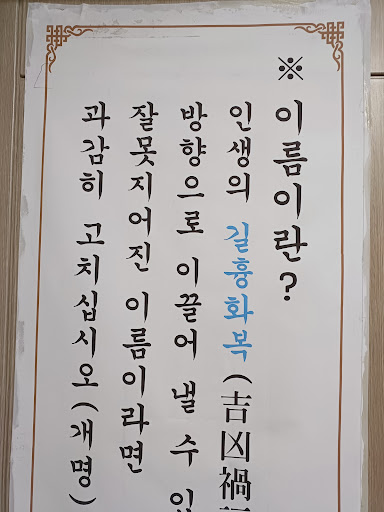 ※ 이름이란?
인생의 길흉화복(吉凶禍
방향으로 이끌어 낼 수
잘못지어진 이름이라면
과감히 고치십시오(개명)